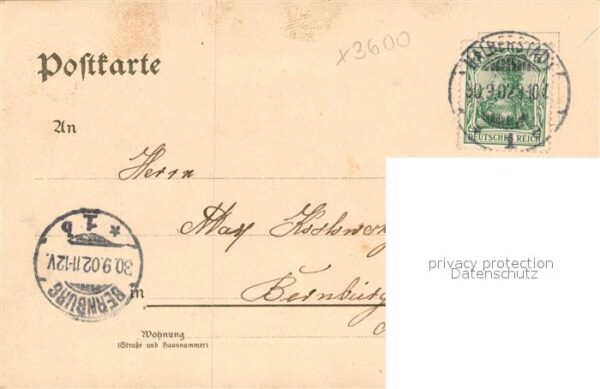 x3600
Postkarte
HALBERSTADT
30.9.02.9-10V.
* 1 e
DEUTSCHES REICH
An
Herrn
Max
BERNBURG
30.9.02.11-12V.
* 1 b
in Bernburg
Wohnung
(Straße und Hausnummer)
privacy protection
Datenschutz